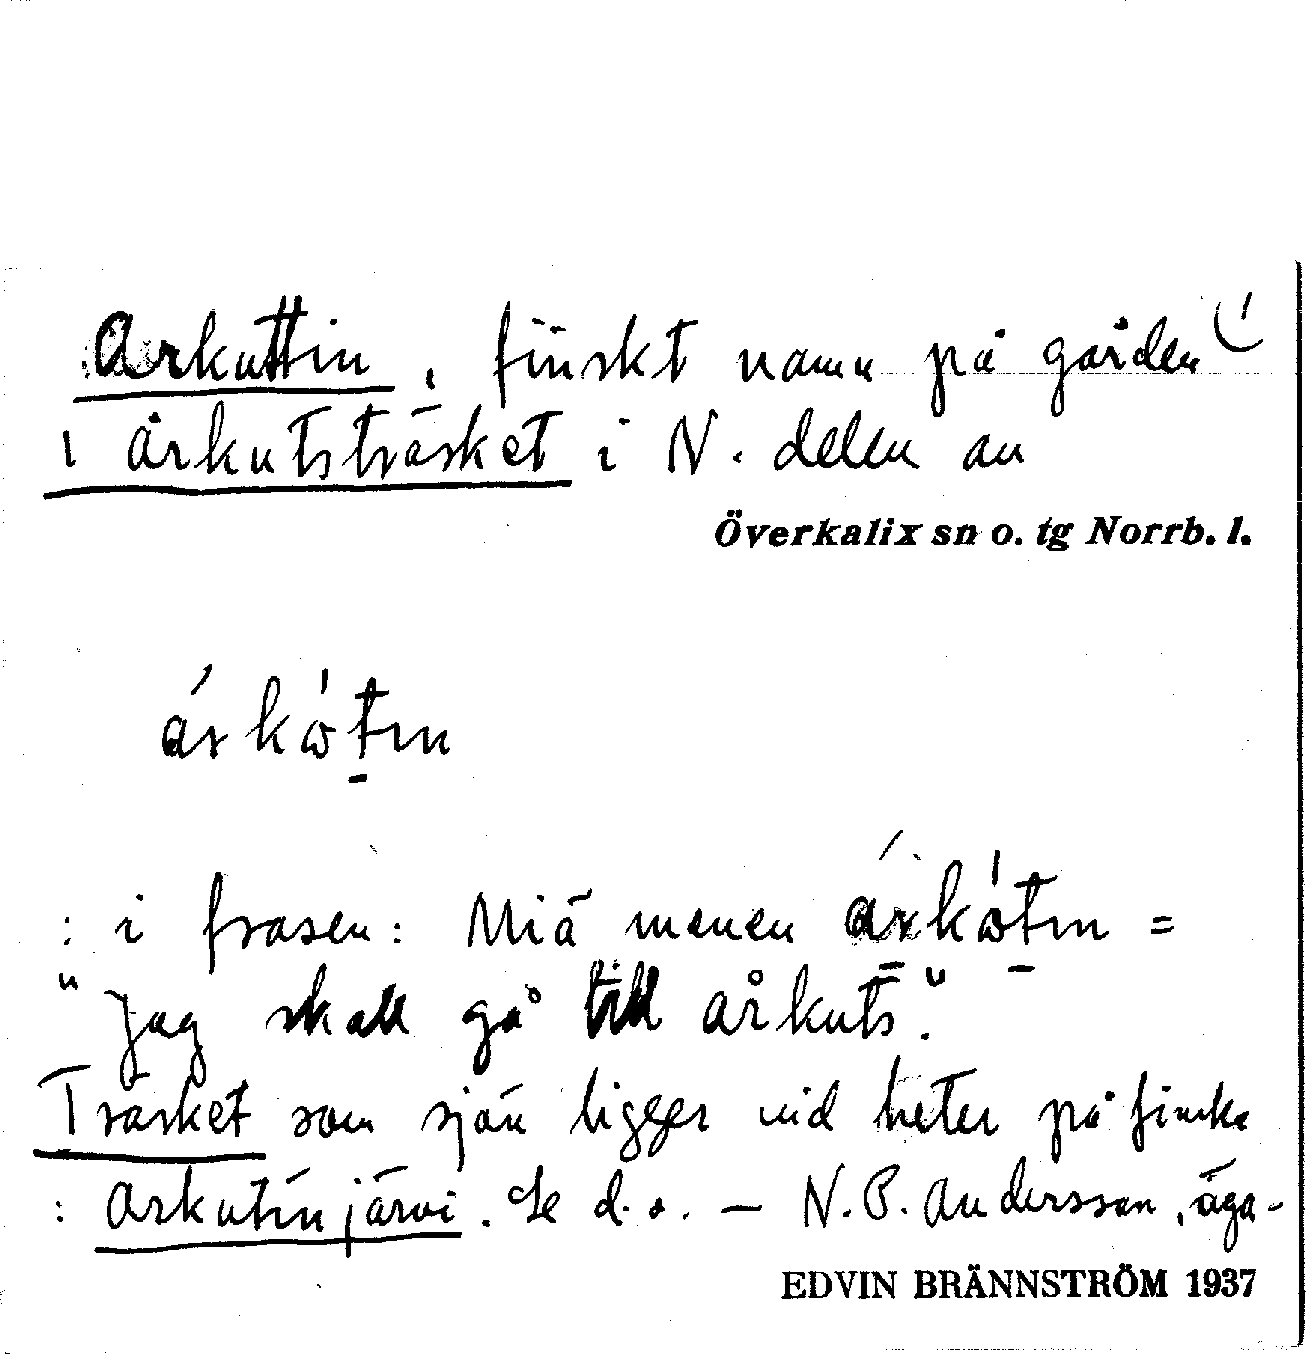 Arkuttin, finskt namn på gården
i årkutsträsket i N. delen av
Överkalix sn o. tg Norrb. l.
árkώtɪn
: i frasen: Miä menen árkώtɪn =
"jag skall gå till årkuts".
Träsket som sjön ligger vid heter på finska
: Arkutinjärvi. Se d.o. — N.P. Andersson, äga-
EDVIN BRÄNNSTRÖM 1937